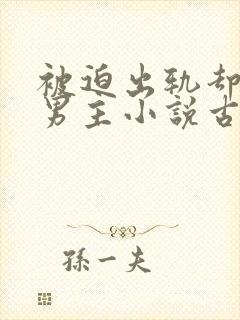 被迫出轨却
男主小説古
孫一夫